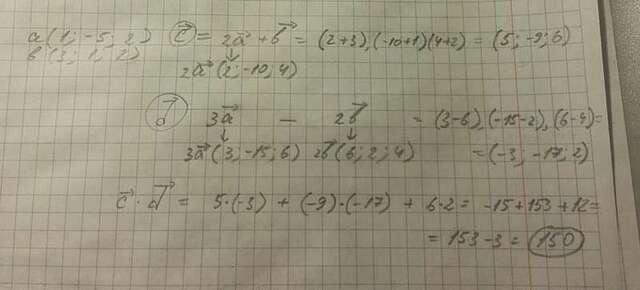 a(1; -5; 2)
b(3; 1; 2)
c⃗ = 2a⃗ + b⃗ = (2+3),(-10+1)(4+2) = (5; -9; 6)
↓
2a⃗(2; -10; 4)
d⃗ 3a⃗ — 2b⃗ = (3-6),(-15-2),(6-4)=
↓ ↓
3a⃗(3; -15; 6) 2b⃗(6; 2; 4) =(-3; -17; 2)
c⃗ · d⃗ = 5·(-3) + (-9)·(-17) + 6·2 = -15+153+12=
= 153-3 = 150